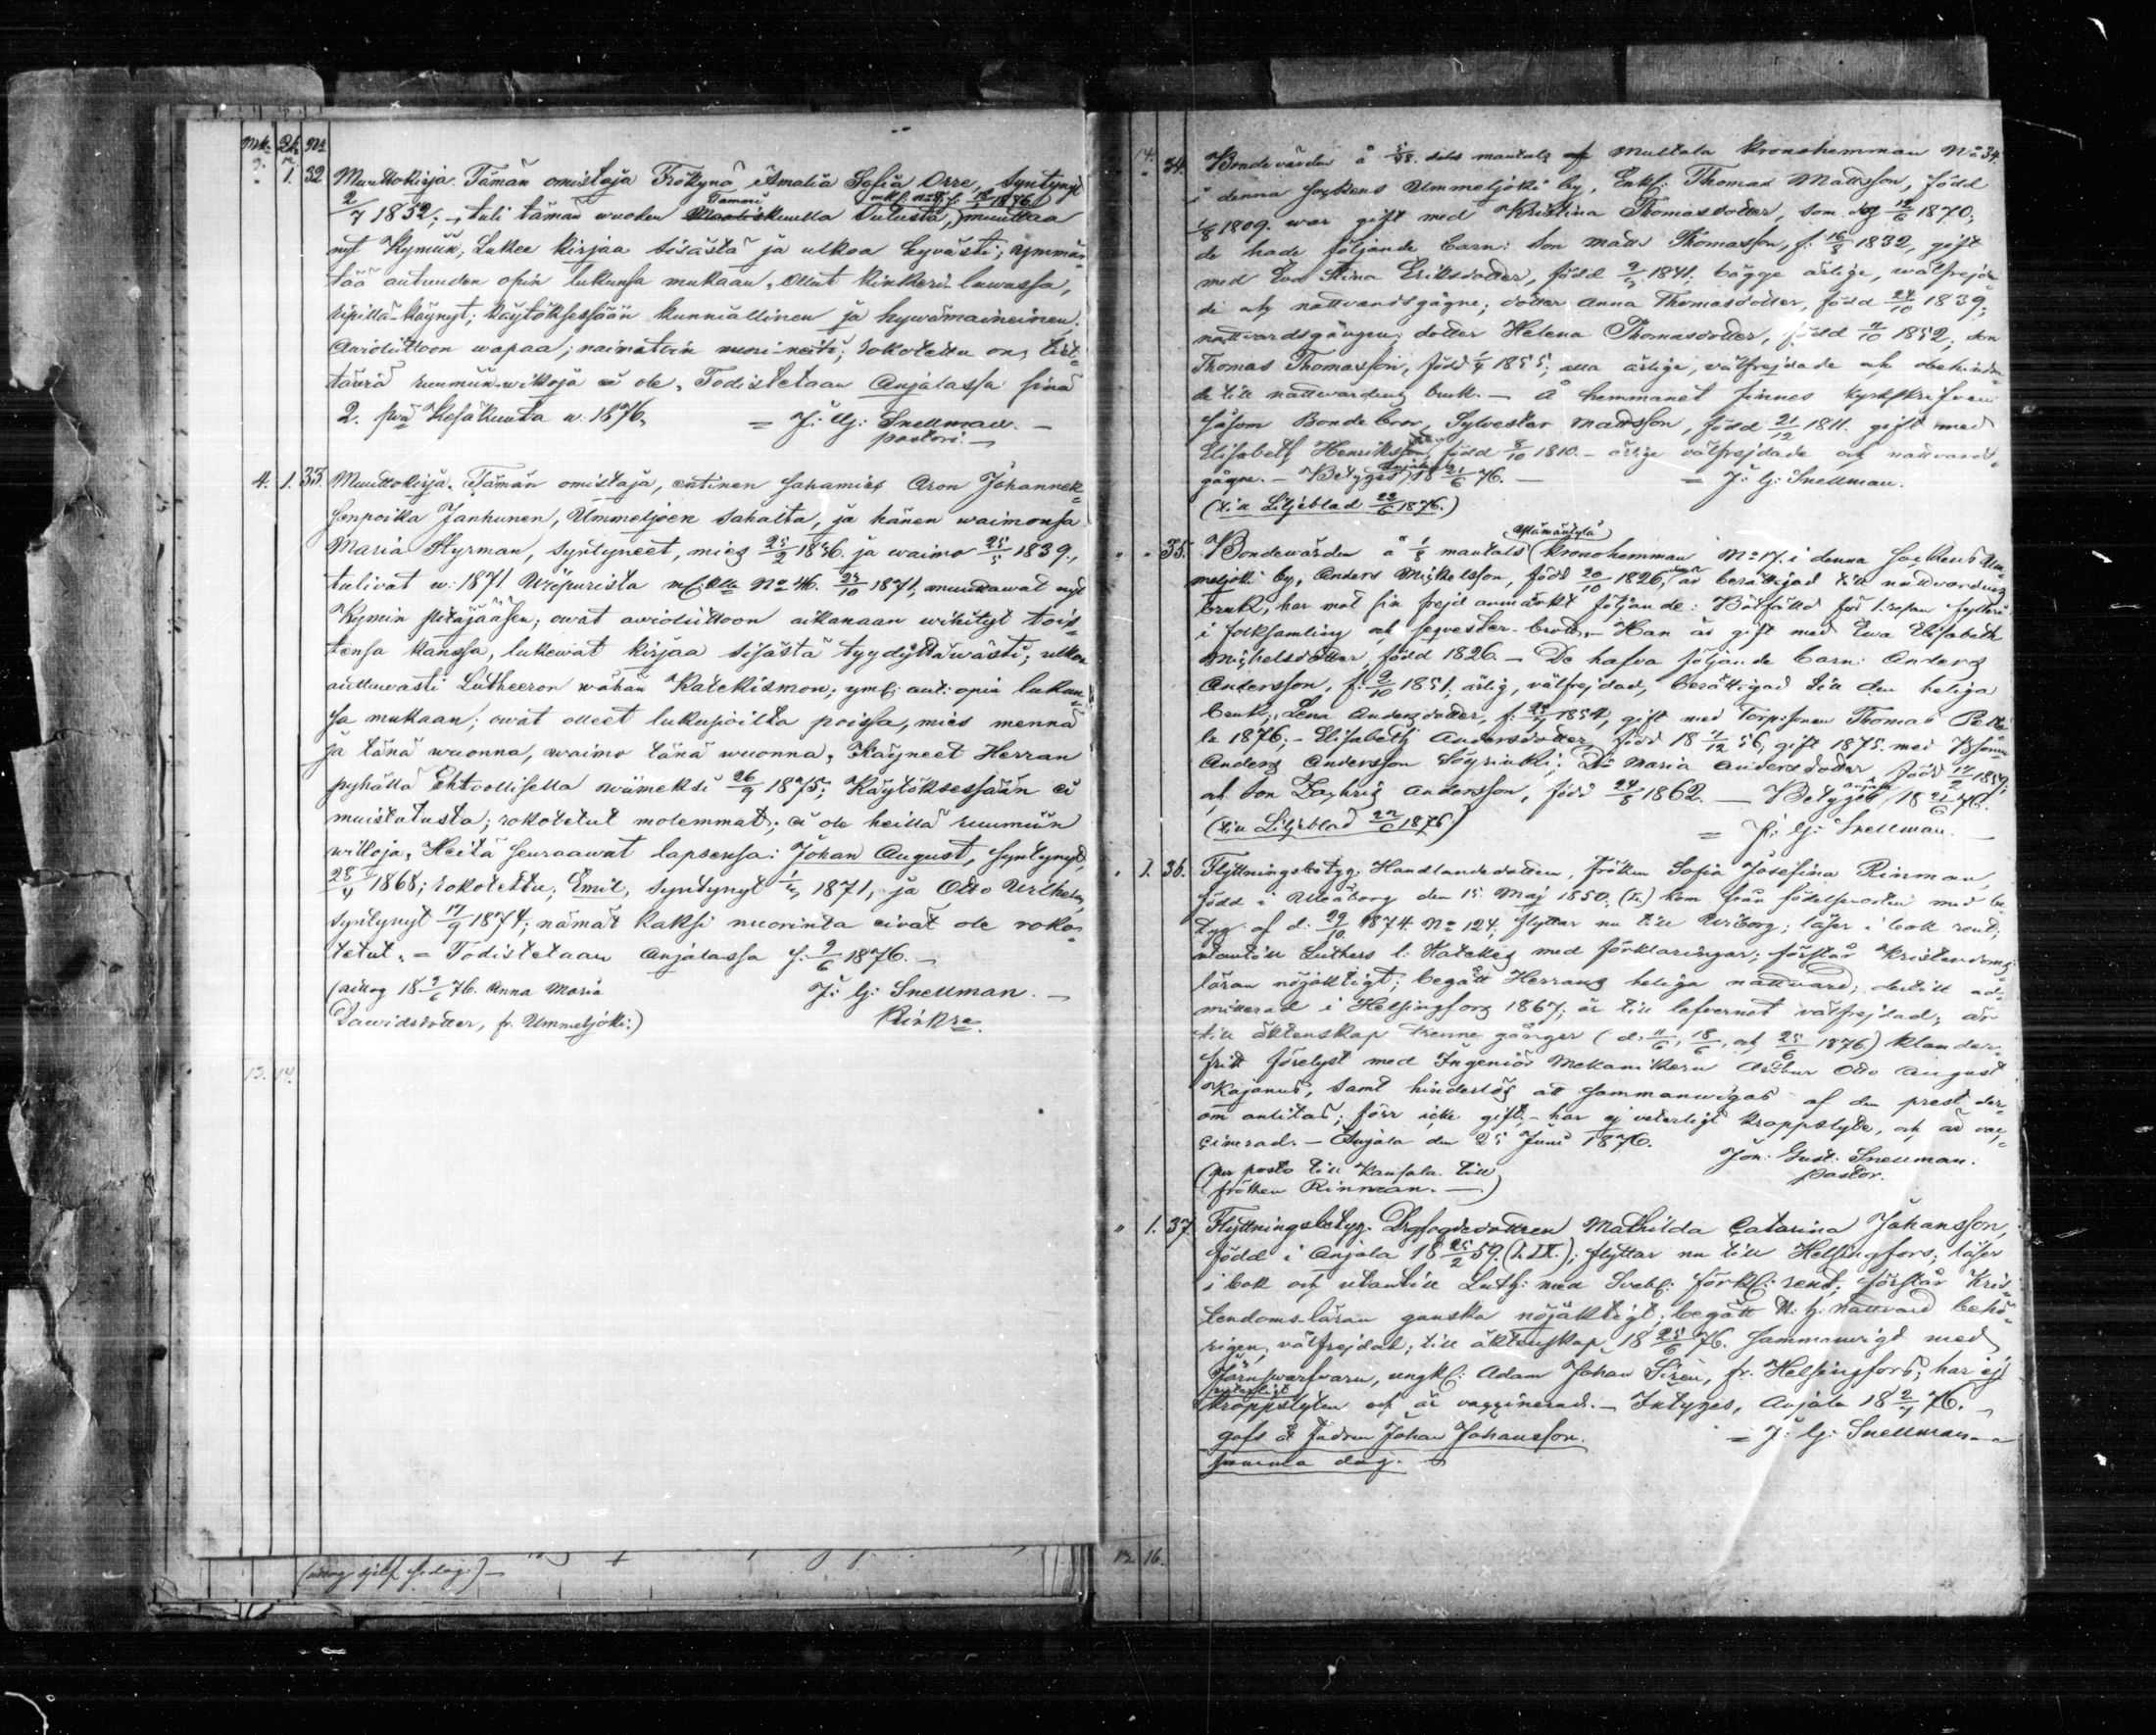 Mk. P. No
9. 12.
" 1. 32 Muuttokirja. Tämän omistaja Frökynä Amalia Sofia Orre, syntynyt
2/7 1852; – tuli tämän wuoden Tammikuulla Oulusta, muuttaa
nyt Kymiin, Lukee kirjaa sisästä ja ulkoa hyvästi; ymmär-
tää autuuden opin lukunsa mukaan, Ollut kinkeri luwussa,
ripillä-käynyt; käytöksessään kunniallinen ja hywämaineinen
Awioliittoon wapaa; naimatoin nuori-neiti; rokotettu on; tiet-
täwiä ruumiin-wikoja ei ole, Todistetaan Anjalassa sinä
2. pnä Kesäkuuta w. 1876, = J: G: Snellman. –
pastori. –
4. 1. 33. Muuttokirja. Tämän omistaja, entinen sahamies Aron Johannek-
senpoika Janhunen, Ummeljoen sahalta, ja hänen waimonsa
Maria Styrman, syntyneet, mies 25/2 1836. ja waimo 25/5 1839.,
tulivat w: 1871 Wiipurista No 46. 23/10 1871, muuttawat nyt
Kymin pitäjääsen; owat awioliittoon aikanaan wihityt tois-
tensa kanssa, lukewat kirjaa sisästä tyydyttäwästi; ulkoa
auttuwasti Lutheeron wähän Katekismon; ym: aut: opin lukun-
sa mukaan; owat olleet lukusioilta poissa, mies mennä
ja tänä wuonna, waimo tänä wuonna, Käyneet Herran
pyhällä Ehtoollisella wiimeksi 26/9 1875; Käytöksessään ei
muistutusta; rokotetut molemmat; ei ole heillä ruumiin
wikoja, Heitä seuraawat lapsensa: Johan August, syntynyt
1868; rokotettu; Emil, syntynyt 1871, ja Otto Wilhelm,
syntynyt 17/9 1874; nämät kaksi nuorinta eivät ole roko-
tetut. = Todistetaan Anjalassa s. 9/6 1876. –
(uttog 18 9/6 76. Anna Maria J: G: Snellman. –
Dawidsdotter, fr. Ummeljoki.) Kirkhra.
13. 14.
(uttog sjelf s. dag.) –
14.
" 34. Bondevärden å dels mantals Multala Kronohemman No 34.
i denna sockens Ummeljoki by, Enkl: Thomas Mattsson, född
1809. war gift med Kristina Thomasdotter, som dog 1870;
de hade följande barn: Son Matts Thomasson, f: 16/8 1832, gift
med Eva Stina Eriksdotter, född 1841; bägge ärlige, wälfrejda-
de och nattvardsgågne; dotter Anna Thomasdotter, född 24/10 1839;
nattvardsgången; dotter Helena Thomasdotter, född 1852; son
Thomas Thomasson, född 1855; alla ärlige, välfrejdade och obehindra-
de till nattvardens bruk. – Å hemmanet finnes kyrkskrifven
såsom Bondebror, Sylvester Mattsson, född 21/12 1811. gift med
Elisabeth Henriksson, född 8/10 1810. – ärlige välfrejdade och nattvards-
gågne. – Betygas Anjala 18 21/6 76. – = J: G: Snellman.
(till Liljeblad 22/6 1876.)
" " 35. Bondevärden å 1/8 mantals Kronohemman No 17. i denna sockens Um-
meljoki by, Anders Michelsson, född 20/10 1826, är berättigad till nattvardens
bruk, har mot sin frejd anmärkt följande: Bötfälld för 1. resan fylleri
i folksamling och seqvester-brott. – Han är gift med Ewa Elisabeth
Michelsdotter, född 1826. – De hafva följande barn: Anders
Andersson, f: 9/10 1851, ärlig, välfrejdad, berättigad till den heliga
bruk; Lena Andersdotter, f: 1854, gift med Torpsonen Thomas
1876; – Elisabeth Andersdotter, född 18 /12 56, gift 1875. med
Anders Andersson Söyrinki; Do Maria Andersdotter född 1859;
och son Zachris Andersson, född 24/8 1862. – Betyges Anjala 18 21/6 76.
(till Liljeblad 22/6 1876) = J: G: Snellman. –
" 1. 36. Flyttningsbetyg. Handlandedottern, fröken Sofia Josefina Rinman,
född i Uleåborg den 15 Maj 1850. kom från födelseorten med be-
tyg af d. 29/10 1874. No 124, flyttar nu till Wiborg; läser i bok rent;
utantill Luthers l. Kateches med förklaringar; förstår kristendoms
läran nöjaktigt; begått Herrans heliga nattvard; dertill ad-
mitterad i Helsingfors 1867; är till lefvernet välfrejdad; är
till äktenskap trenne gånger (d: 11/6, 18/6, och 25/6 1876.) klander-
fritt förelyst med Ingeniör Mekanikern Arthur Otto August
Kajanus, samt hinderlös att sammanwigas af den prest der-
om anlitas; förr icke gift; – har ej veterligt kroppslyte, och är vac-
cinerad. – Anjala den 25 Juni 1876.
(per posto till Kausala till Joh: Gust: Snellman.
fröken Rinman. –) pastor.
" 1. 37. Flyttningsbetyg. Dottren Mathilda Catarina Johansson,
född i Anjala 18 25/2 59. flyttar nu till Helsingfors; läser
i bok och utantill Luth: med Sveb: förkl: rent; förstår kris-
tendoms-läran ganska nöjaktigt; begått H: h: nattvard behö-
rigen; välfrejdad; till äktenskap 18 25/6 76. sammanwigd med
Järnswarfvaren, ungkl: Adam Johan Sirén, fr. Helsingfors; har ej
veterligt
kroppslyten och är vaccinerad. – Intyges, Anjala 18 2/7 76. –
gafs åt fadren Johan Johansson. = J: G: Snellman. –
samma dag. –
12. 16.